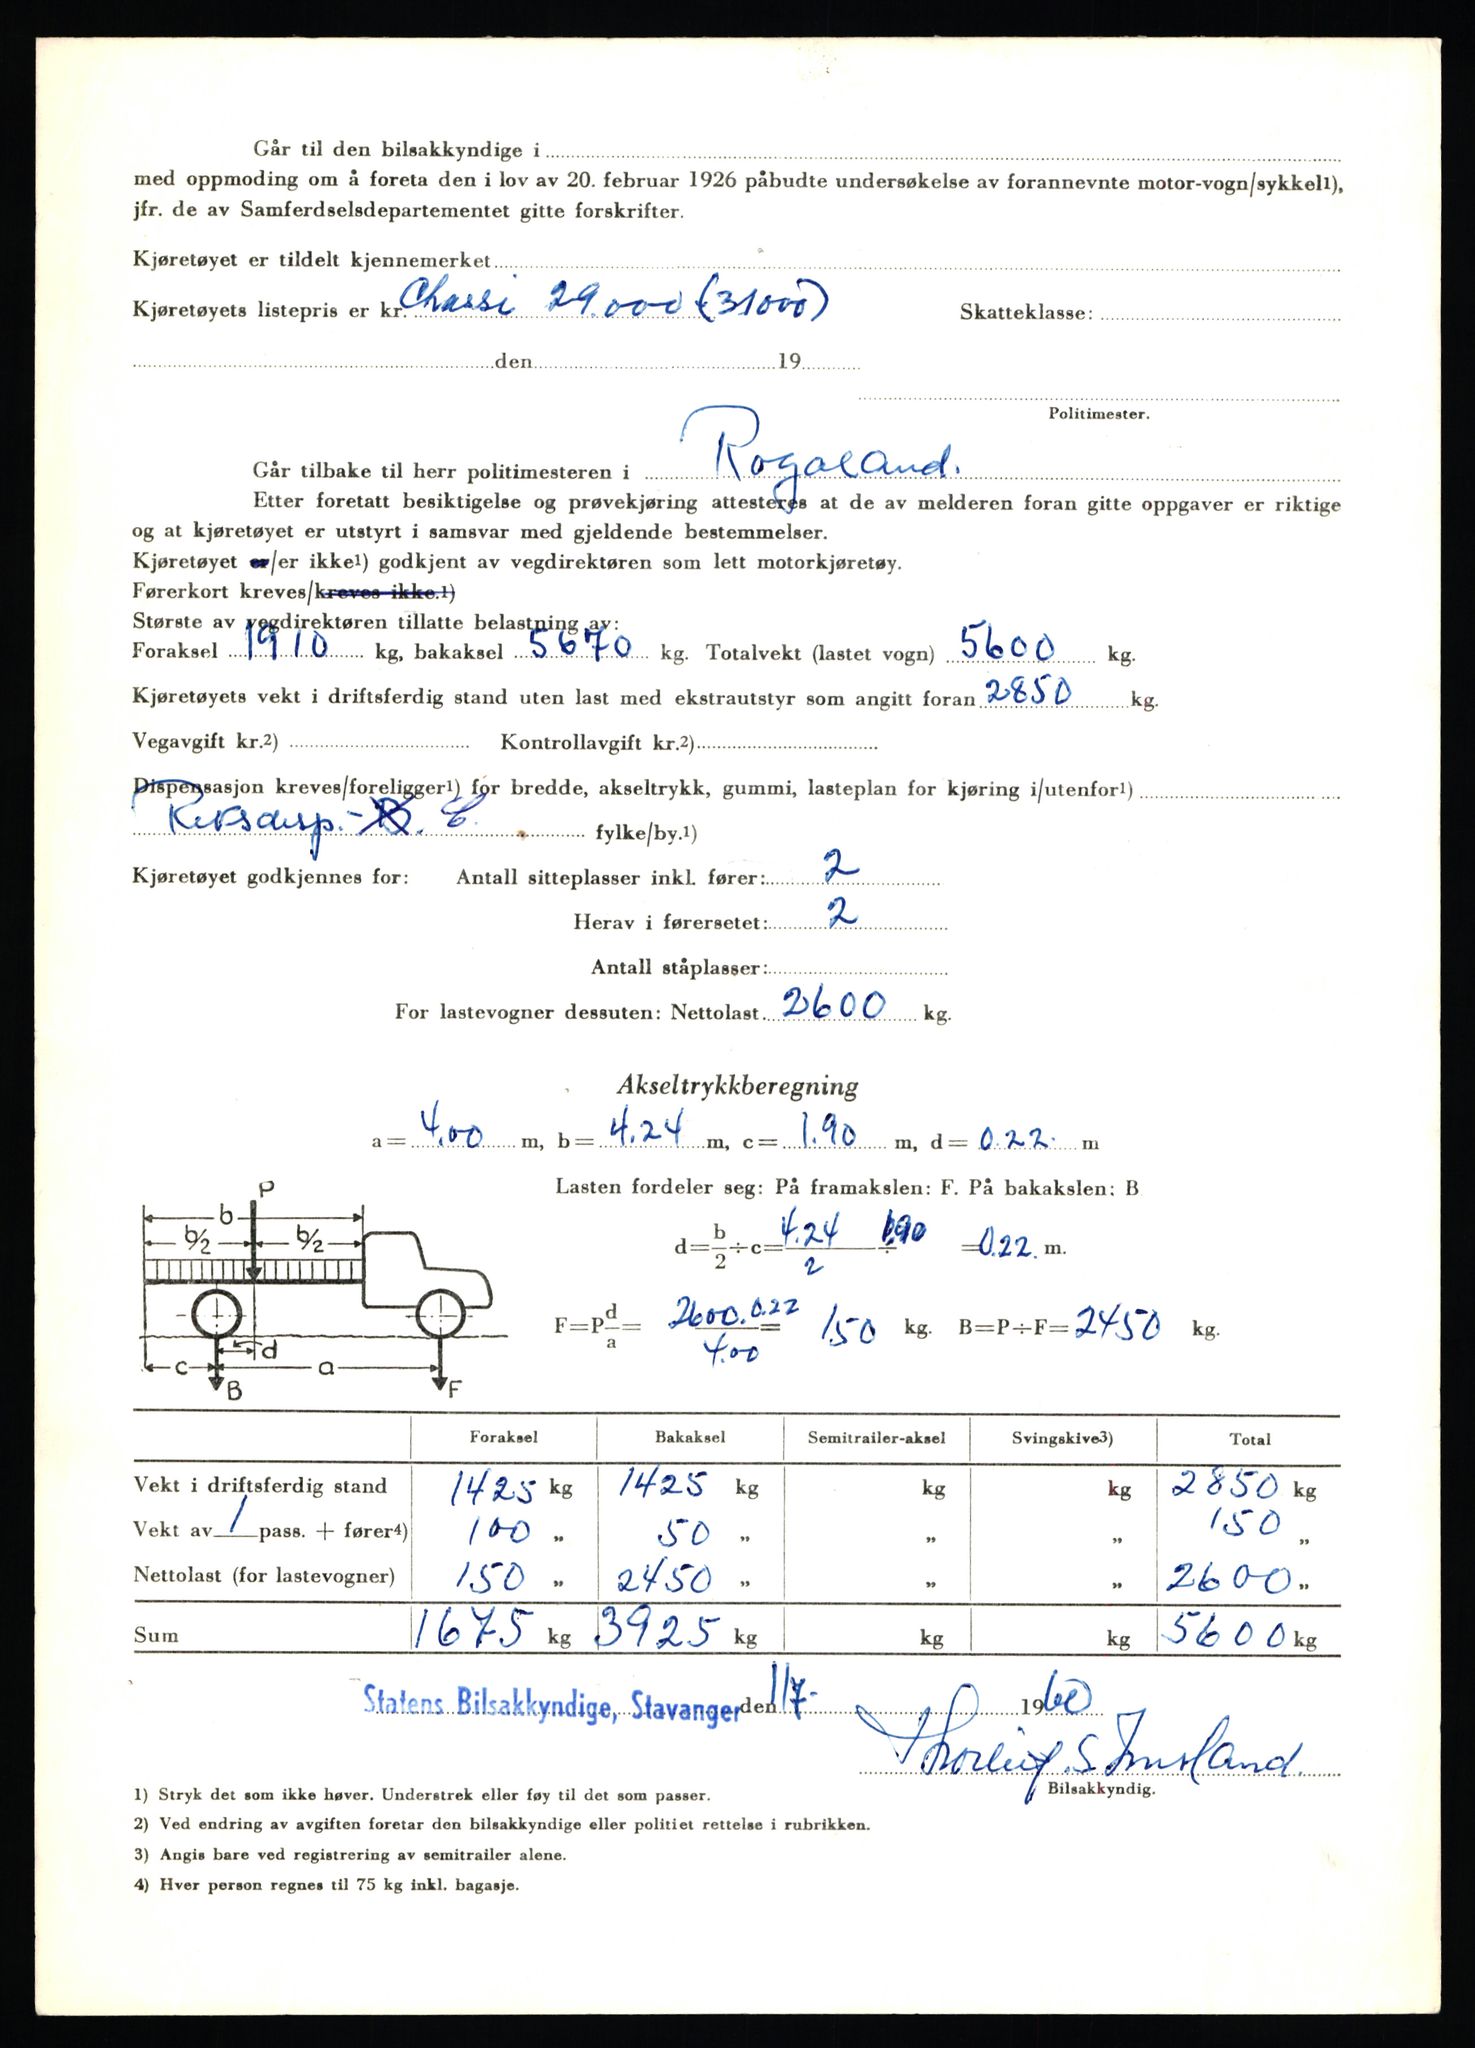 Går til den bilsakkyndige i
med oppmoding om å foreta den i lov av 20. februar 1926 påbudte undersøkelse av forannevnte motor-vogn/sykkel1),
jfr. de av Samferdselsdepartementet gitte forskrifter.
Kjøretøyet er tildelt kjennemerket
Kjøretøyets listepris er kr. Chassi 29.000 (31000) Skatteklasse:
den 19
Politimester.
Går tilbake til herr politimesteren i Rogaland.
Etter foretatt besiktigelse og prøvekjøring attesteres at de av melderen foran gitte oppgaver er riktige
og at kjøretøyet er utstyrt i samsvar med gjeldende bestemmelser.
Kjøretøyet er/er ikke1) godkjent av vegdirektøren som lett motorkjøretøy.
Førerkort kreves/kreves ikke.1)
Største av vegdirektøren tillatte belastning av:
Foraksel 1910 kg, bakaksel 5670 kg. Totalvekt (lastet vogn) 5600 kg.
Kjøretøyets vekt i driftsferdig stand uten last med ekstrautstyr som angitt foran 2850 kg.
Vegavgift kr.2) Kontrollavgift kr.2)
Dispensasjon kreves/foreligger1) for bredde, akseltrykk, gummi, lasteplan for kjøring i/utenfor1)
Riksdisp. - B. C. fylke/by.1)
Kjøretøyet godkjennes for: Antall sitteplasser inkl. fører: 2
Herav i førersetet: 2
Antall ståplasser:
For lastevogner dessuten: Nettolast 2600 kg.
Akseltrykkberegning
a = 4.00 m, b = 4.24 m, c = 1.90 m, d = 0.22 m
Lasten fordeler seg: På framakslen: F. På bakakslen: B
P
b
b/2 b/2
d = b/2 ÷ c = 4.24/2 ÷ 1.90 = 0.22 m.
F = P d/a = 2600.0.22/4.00 = 150 kg. B = P ÷ F = 2450 kg.
c d a
B F
Foraksel Bakaksel Semitrailer-aksel Svingskive3) Total
Vekt i driftsferdig stand 1425 kg 1425 kg kg kg 2850 kg
Vekt av 1 pass. + fører4) 100 „ 50 „ „ „ 150 „
Nettolast (for lastevogner) 150 „ 2450 „ „ „ 2600 „
Sum 1675 kg 3925 kg kg kg 5600 kg
Statens Bilsakkyndige, Stavanger den 1/7- 1960
Thorleif S. Imsland.
Bilsakkyndig.
1) Stryk det som ikke høver. Understrek eller føy til det som passer.
2) Ved endring av avgiften foretar den bilsakkyndige eller politiet rettelse i rubrikken.
3) Angis bare ved registrering av semitrailer alene.
4) Hver person regnes til 75 kg inkl. bagasje.